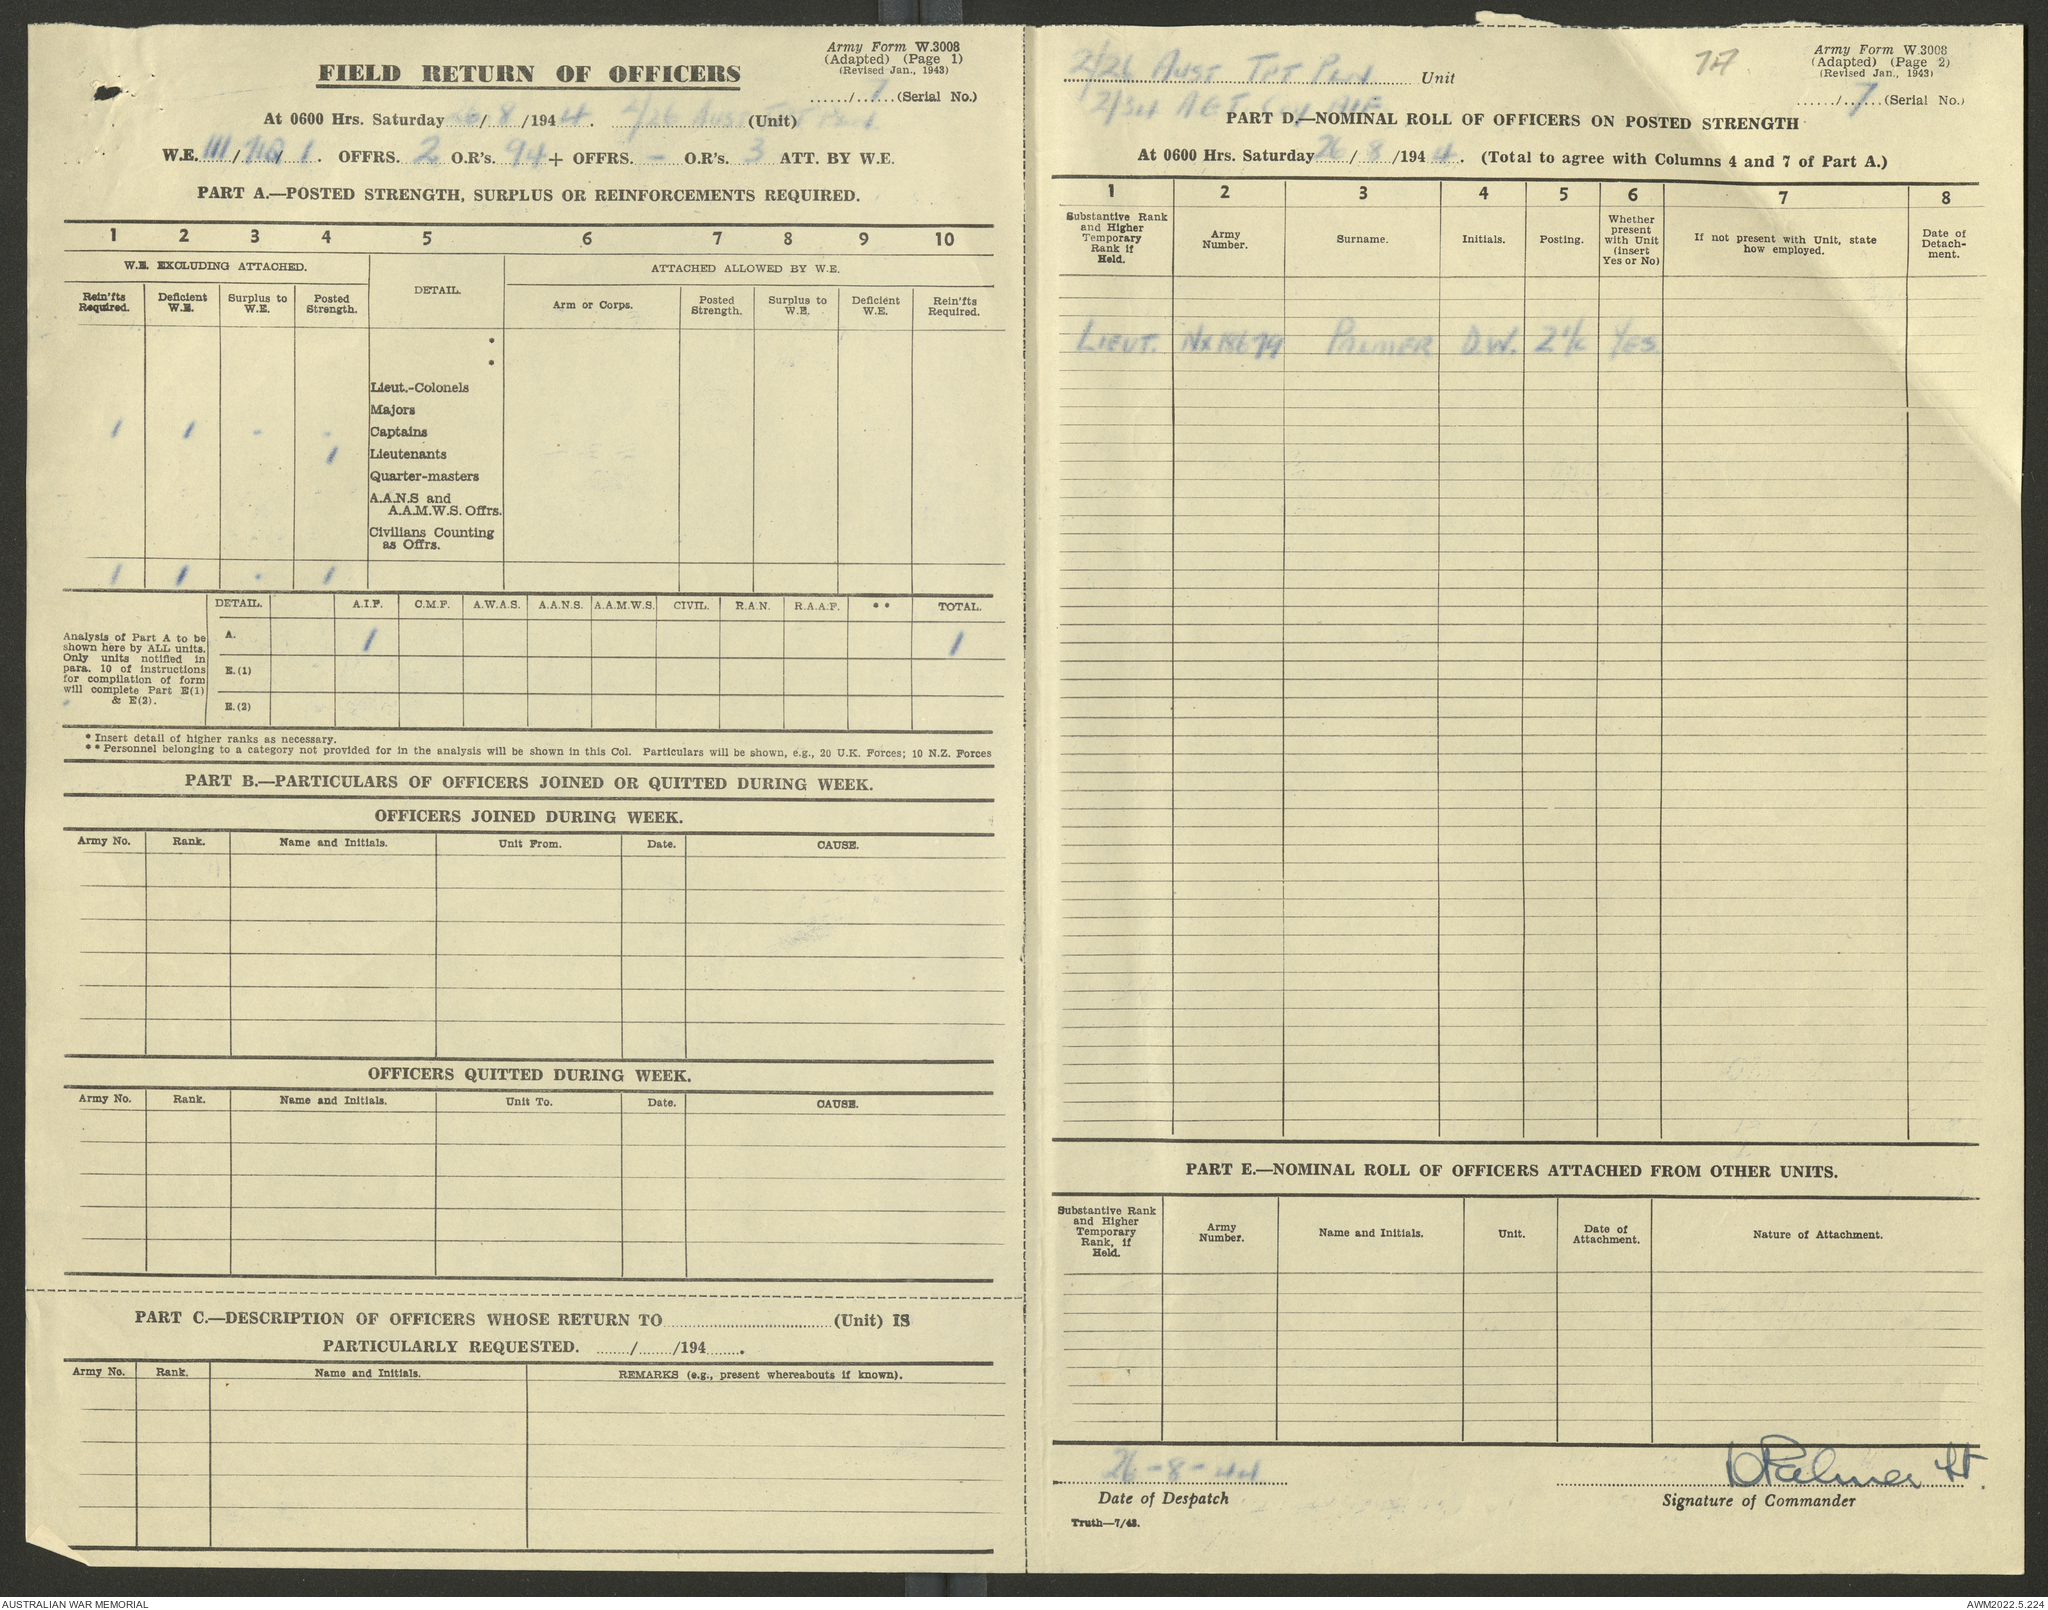 Army Form W.3008
(Adapted) (Page 1)
(Revised Jan., 1943)
FIELD RETURN OF OFFICERS
....../...7...(Serial No.)
At 0600 Hrs. Saturday 26/8/1944. 2/26 Aust Tpt Pln (Unit)
W.E. III/ / 1. OFFRS. 2 O.R's. 94 + OFFRS. - O.R's. 3 ATT. BY W.E.
PART A.—POSTED STRENGTH, SURPLUS OR REINFORCEMENTS REQUIRED.
1 2 3 4 5 6 7 8 9 10
W.E. EXCLUDING ATTACHED. DETAIL. ATTACHED ALLOWED BY W.E.
Rein'fts Required. Deficient W.E. Surplus to W.E. Posted Strength. Arm or Corps. Posted Strength. Surplus to W.E. Deficient W.E. Rein'fts Required.
*
*
Lieut.-Colonels
Majors
1 1 - - Captains
1 Lieutenants
Quarter-masters
A.A.N.S and
A.A.M.W.S. Offrs.
Civilians Counting
as Offrs.
1 1 - 1
DETAIL. A.I.F. C.M.F. A.W.A.S. A.A.N.S. A.A.M.W.S. CIVIL. R.A.N. R.A.A.F. ** TOTAL.
Analysis of Part A to be
shown here by ALL units.
Only units notified in
para. 10 of instructions
for compilation of form
will complete Part E(1)
& E(2).
A. 1 1
E.(1)
E.(2)
* Insert detail of higher ranks as necessary.
** Personnel belonging to a category not provided for in the analysis will be shown in this Col. Particulars will be shown, e.g., 20 U.K. Forces; 10 N.Z. Forces
PART B.—PARTICULARS OF OFFICERS JOINED OR QUITTED DURING WEEK.
OFFICERS JOINED DURING WEEK.
Army No. Rank. Name and Initials. Unit From. Date. CAUSE.
OFFICERS QUITTED DURING WEEK.
Army No. Rank. Name and Initials. Unit To. Date. CAUSE.
PART C.—DESCRIPTION OF OFFICERS WHOSE RETURN TO..............................(Unit) IS
PARTICULARLY REQUESTED. ......./......./194.......
Army No. Rank. Name and Initials. REMARKS (e.g., present whereabouts if known).
2/26 Aust Tpt Pln Unit
2/34 AGT Coy AIF
77
Army Form W.3008
(Adapted) (Page 2)
(Revised Jan., 1943)
....../...7...(Serial No.)
PART D.—NOMINAL ROLL OF OFFICERS ON POSTED STRENGTH
At 0600 Hrs. Saturday 26/8/1944. (Total to agree with Columns 4 and 7 of Part A.)
1 2 3 4 5 6 7 8
Substantive Rank and Higher Temporary Rank if Held. Army Number. Surname. Initials. Posting. Whether present with Unit (insert Yes or No) If not present with Unit, state how employed. Date of Detachment.
LIEUT. NX18679 PALMER D.W. 2 i/c YES.
PART E.—NOMINAL ROLL OF OFFICERS ATTACHED FROM OTHER UNITS.
Substantive Rank and Higher Temporary Rank, if Held. Army Number. Name and Initials. Unit. Date of Attachment. Nature of Attachment.
26-8-44
Date of Despatch
D Palmer Lt.
Signature of Commander
Truth—7/43.
AUSTRALIAN WAR MEMORIAL
AWM2022.5.224